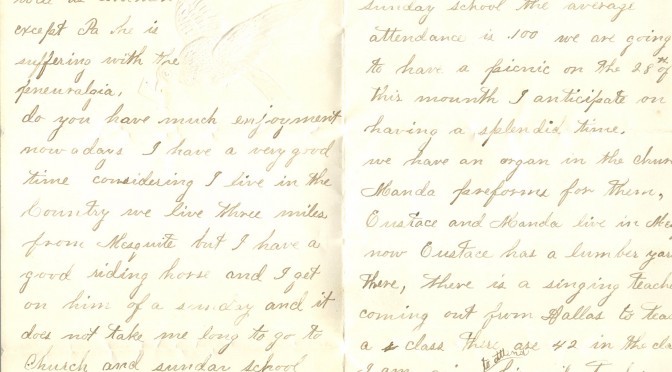 except Pa he is
suffering with the
pneuralgia.
do you have much enjoyment
now a days I have a very good
time considering I live in the
Country we live three miles
from Mesquite but I have a
good riding horse and I get
on him of a sunday and it
does not take me long to go to
Church and sunday school
sunday school the average
attendance is 100 we are going
to have a picnic on the 28th of
this mounth I anticipate on
having a splendid time.
we have an organ in the chur
Manda preforms for them,
Eustace and Manda live in Mes
now Eustace has a lumber yar
there, there is a singing teache
coming out from Dallas to teac
a class there are 42 in the cla
to attend
I am